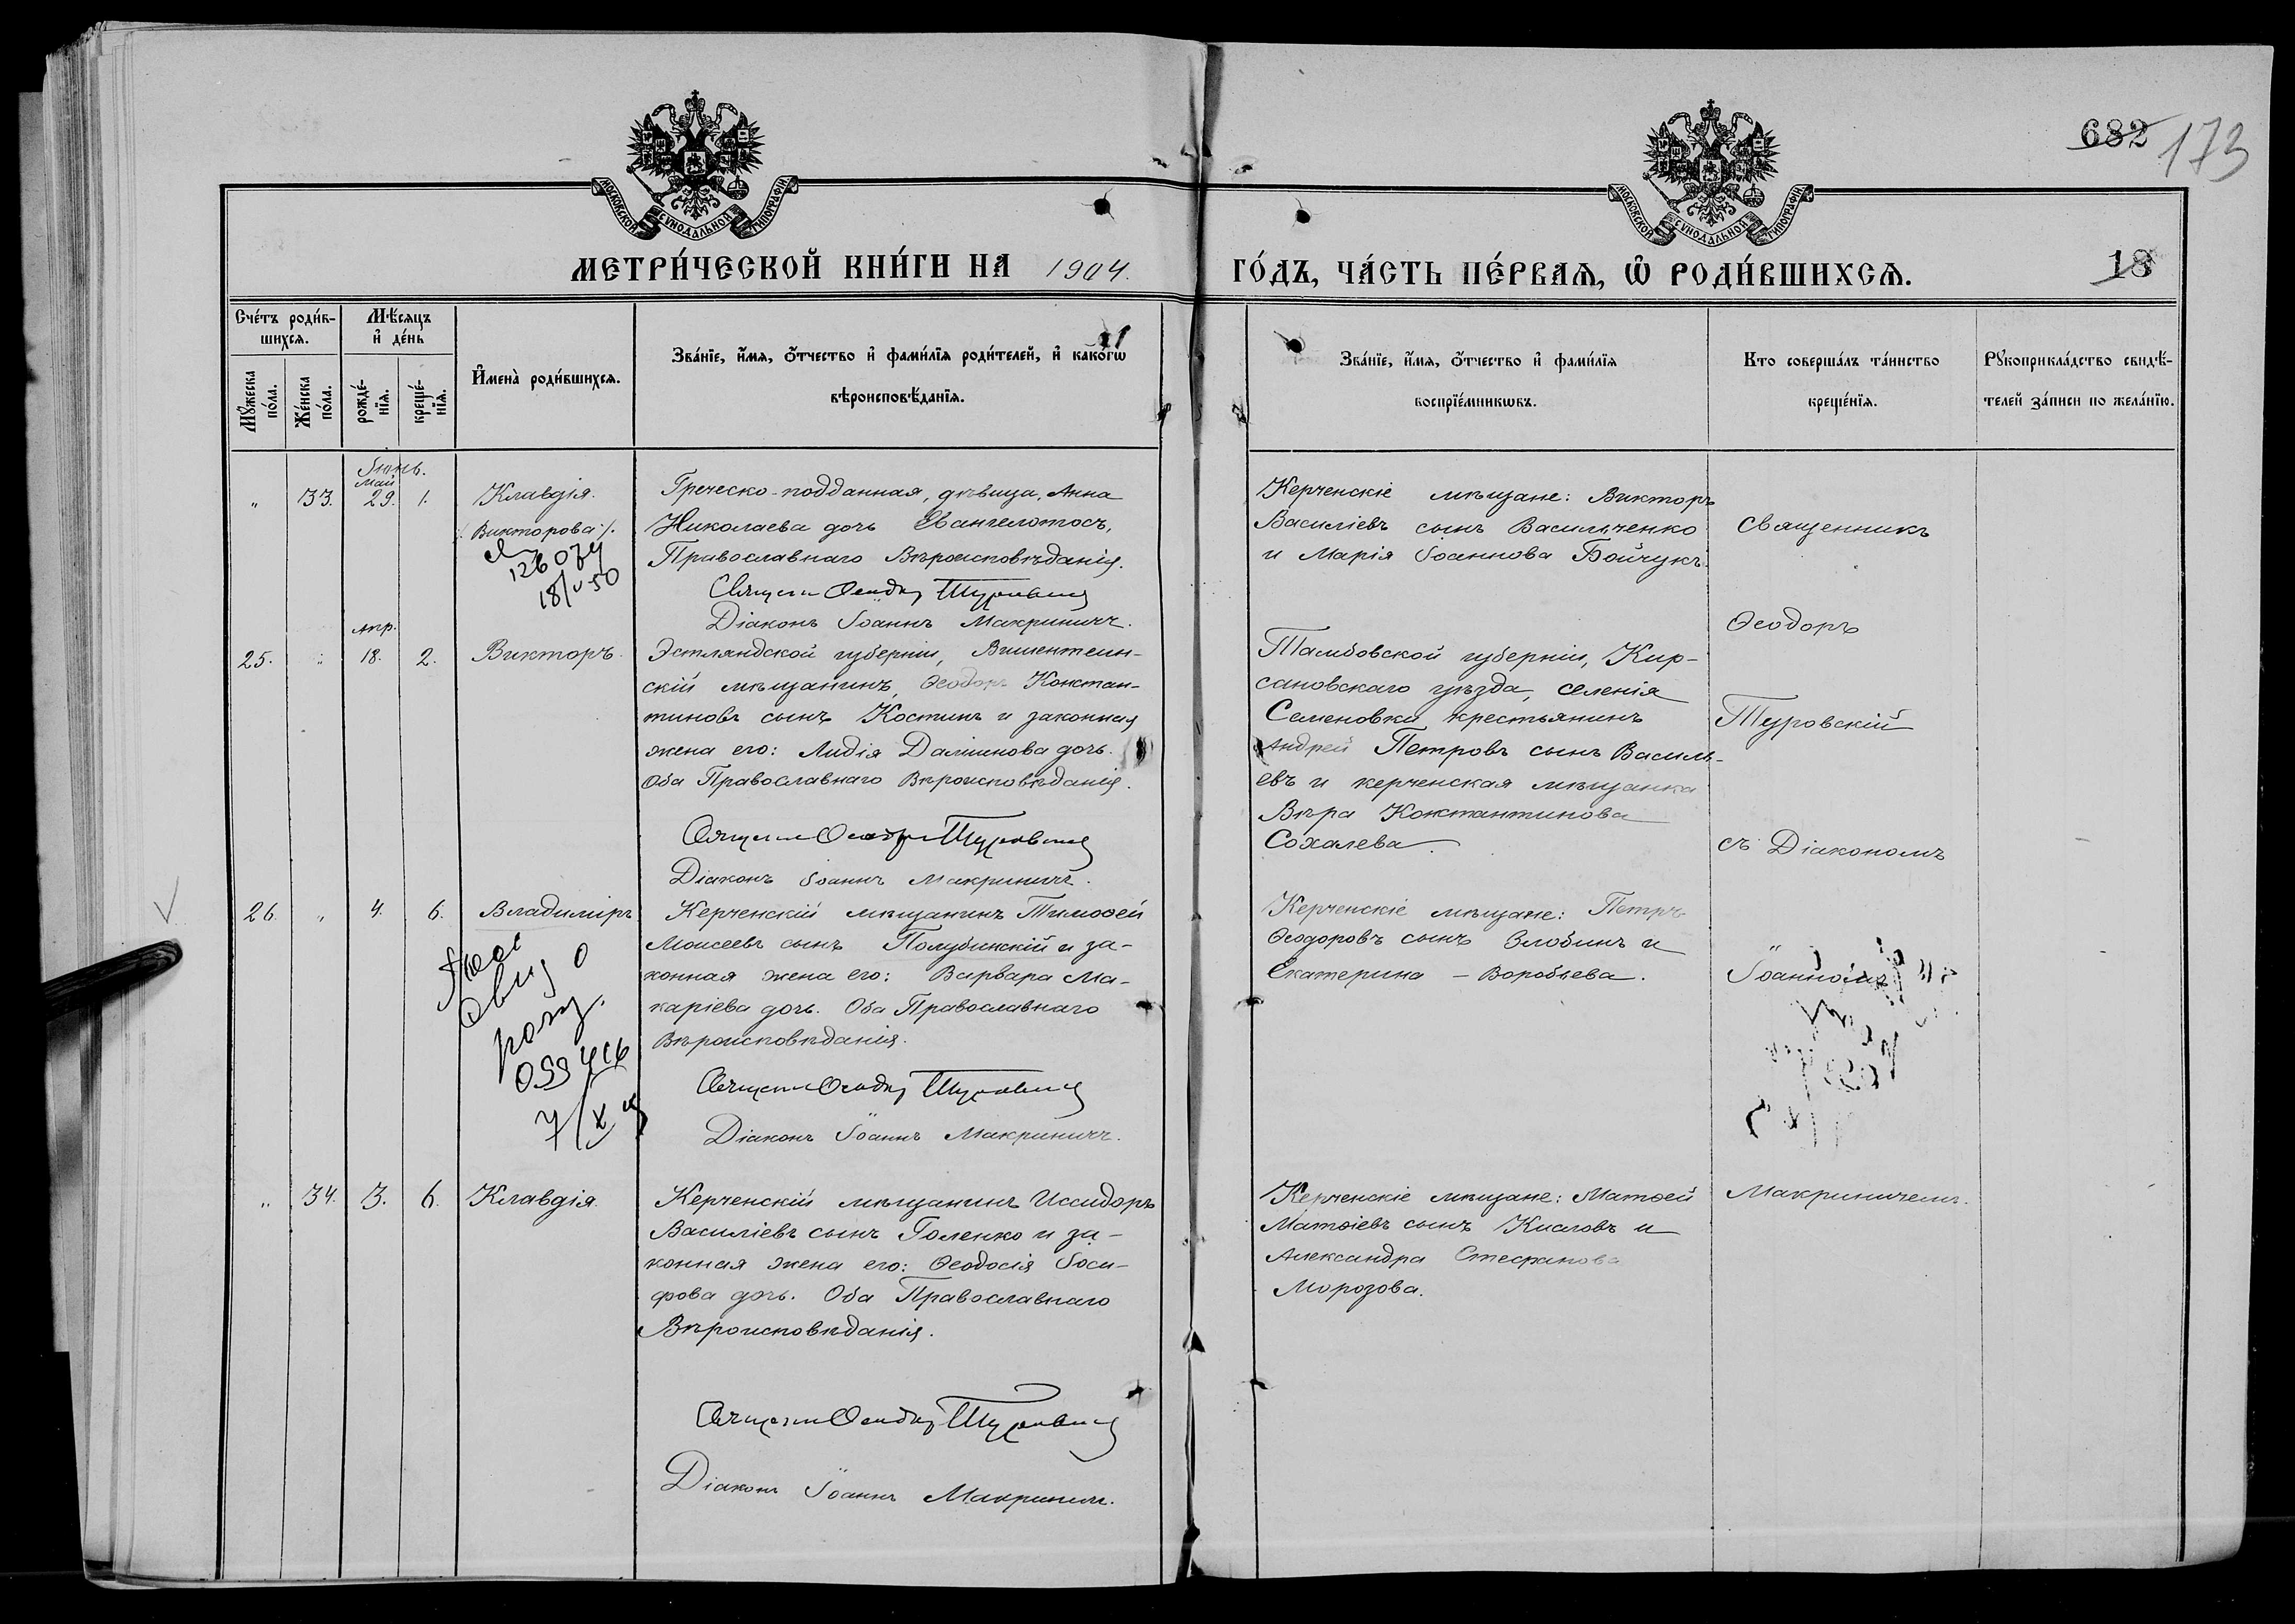 682 173
МОСКОВСКОЙ СѴНОДАЛЬНОЙ ТИПОГРАФІИ
МОСКОВСКОЙ СѴНОДАЛЬНОЙ ТИПОГРАФІИ
МЕТРИ́ЧЕСКОЙ КНИ́ГИ НА 1904. ГО́ДЪ, ЧА́СТЬ ПЕ́РВАѦ, Ѡ҆ РОДИ́ВШИХСѦ.
18
Сче́тъ роди́в-
шихсѧ.
Мꙋ́жеска по́ла.
Же́нска по́ла.
Мѣ́сѧцъ
и҆ де́нь
рожде́-
нїѧ.
креще́-
нїѧ.
И҆мена̀ роди́вшихсѧ.
Зва́нїе, и҆́мѧ, ѻ҆́тчество и҆ фами́лїѧ роди́телей, и҆ како́гѡ
вѣроисповѣ́данїѧ.
Зва́нїе, и҆́мѧ, ѻ҆́тчество и҆ фами́лїѧ
воспрїе́мникѡвъ.
Кто соверша́лъ та́инство
креще́нїѧ.
Рꙋкоприкла́дство свидѣ́-
телей за́писи по жела́нїю.
Іюнь.
Май
" 33. 29. 1. Клавдія.
/: Викторова :/.
126074
18/V-50
Греческо-подданная, дѣвица, Анна
Николаева дочь Евангелотосъ,
Православнаго Вѣроисповѣданія.
Священ Ѳеодор Туровский
Діаконъ Іоаннъ Макриничъ.
Керченскіе мѣщане: Викторъ
Василіевъ сынъ Васильченко
и Марія Іоаннова Бойчукъ.
Священникъ
Ѳеодоръ
Туровскій
съ Діакономъ
Іоанномъ
Макриничемъ.
Апр.
25. " 18. 2. Викторъ.
Эстляндской губерніи, Вишентеин-
скій мѣщанинъ, Ѳеодоръ Констан-
тиновъ сынъ Костинъ и законная
жена его: Лидія Даміинова дочь.
Оба Православнаго Вѣроисповѣданія.
Священ Ѳеодор Туровский
Діаконъ Іоаннъ Макриничъ.
Тамбовской губерніи, Кир-
сановскаго уѣзда, селенія
Семеновки крестьянинъ
Андрей Петровъ сынъ Василь-
евъ и керченская мѣщанка
Вѣра Константинова
Сохалева.
26. " 4. 6. Владиміръ
099416
7/X
Керченскій мѣщанинъ Тимоѳей
Моисеевъ сынъ Полубинскій и за-
конная жена его: Варвара Ма-
каріева дочь. Оба Православнаго
Вѣроисповѣданія.
Священ Ѳеодор Туровский
Діаконъ Іоаннъ Макриничъ.
Керченскіе мѣщане: Петръ
Ѳеодоровъ сынъ Злобинъ и
Екатерина – Воробьева.
" 34. 3. 6. Клавдія.
Керченскій мѣщанинъ Иссидоръ
Василіевъ сынъ Голенко и за-
конная жена его: Ѳеодосія Іоси-
фова дочь. Оба Православнаго
Вѣроисповѣданія.
Священ Ѳеодор Туровский
Діаконъ Іоаннъ Макриничъ.
Керченскіе мѣщане: Матѳей
Матѳіевъ сынъ Кисловъ и
Александра Стефанова
Морозова.